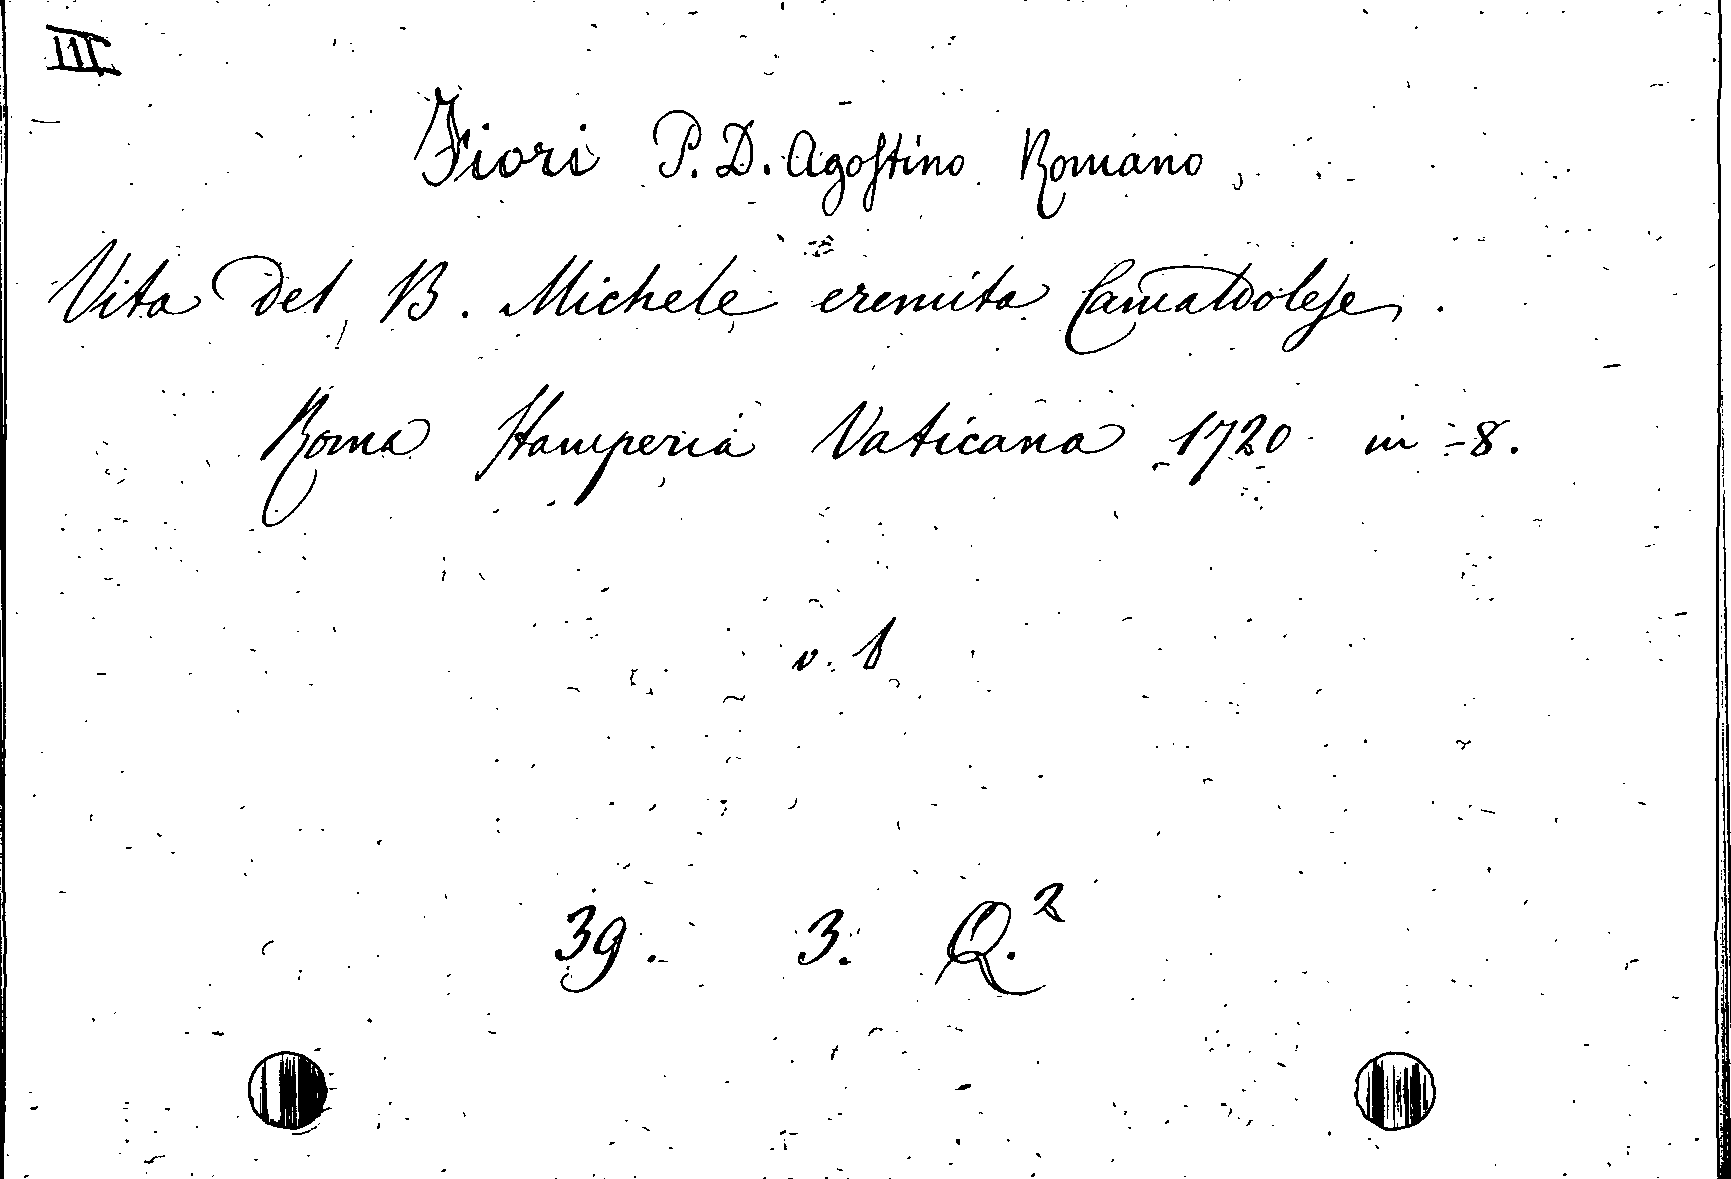 III
Fiori P. D. Agostino Romano,
Vita del B. Michele eremita Camaldolese.
Roma Stamperia Vaticana 1720 in-8.
v. 1
39. 3. Q.²